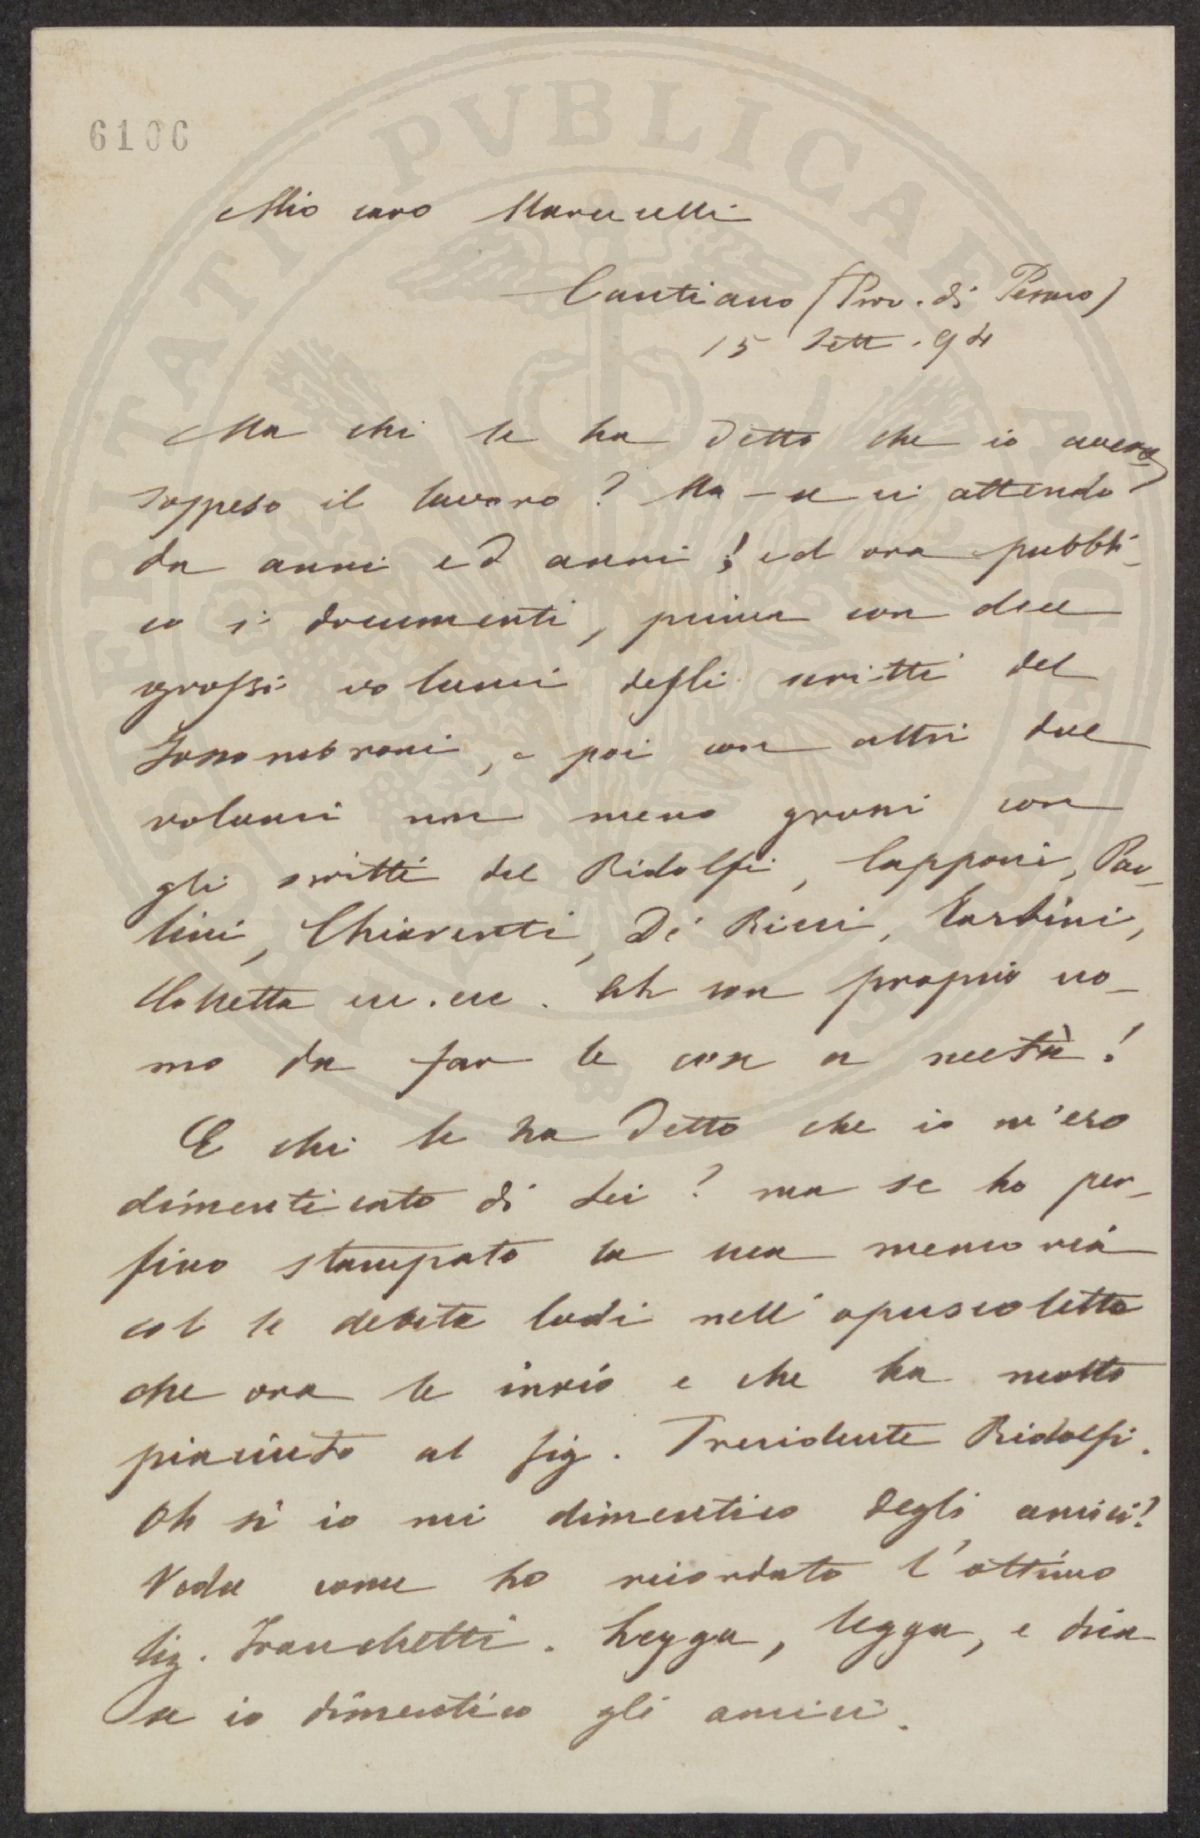 6106
Mio caro Marucelli
Cantiano (Prov. di Pesaro)
15 Sett. 94
Ma chi le ha detto che io aveva
sospeso il lavoro? Ma se ci attendo
da anni ed anni! ed ora pubbli-
co i documenti, prima con due
grossi volumi degli scritti del
Fossombroni, e poi con altri due
volumi non meno grossi con
gli scritti del Ridolfi, Capponi, Pao-
lini, Chiarenti, De Ricci, Tartini,
ecc. ecc. Oh son proprio uo-
mo da far le cose a metà!
E chi le ha detto che io m'ero
dimenticato di Lei? ma se ho per-
fino stampato la sua memoria
col le debite lodi nell'opuscoletto
che ora le invio e che ha molto
piaciuto al Sig. Presidente Ridolfi.
Oh sì io mi dimentico degli amici?
Veda come ho ricordato l'ottimo
Sig. Franchetti. Legga, legga, e dica
se io dimentico gli amici.
PVBLICAE